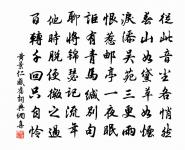 從此音塵各悄然
春山如黛草如煙
淚添吳苑三更雨
恨惹郵亭一夜眠
詎有青鳥緘別句
聊將錦瑟記流年
他時脫便微之過
百轉千回只自憐
黄景仁感舊詞典網